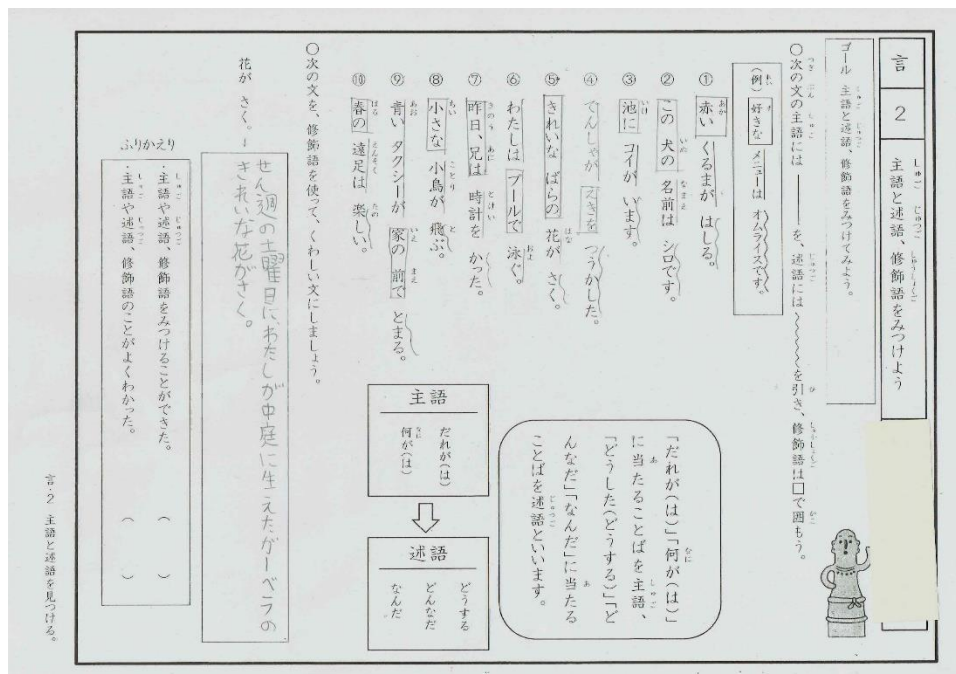 言
2
主語と述語、修飾語をみつけよう
ゴール　主語と述語、修飾語をみつけてみよう。
○次の文の主語には ――― を、述語には 〜〜〜〜を引き、修飾語は□で囲もう。
（例）好きな メニューは オムライスです。
① 赤い くるまが はしる。
② この 犬の 名前は シロです。
③ 池に コイが います。
④ でんしゃが えきを つうかした。
⑤ きれいな ばらの 花が さく。
⑥ わたしは プールで 泳ぐ。
⑦ 昨日、兄は 時計を かった。
⑧ 小さな 小鳥が 飛ぶ。
⑨ 青い タクシーが 家の 前で とまる。
⑩ 春の 遠足は 楽しい。
「だれが(は)」「何が(は)」
に当たることばを主語、
「どうした(どうする)」「ど
んなだ」「なんだ」に当たる
ことばを述語といいます。
主語
だれが(は)
何が(は)
述語
どうする
どんなだ
なんだ
○次の文を、修飾語を使って、くわしい文にしましょう。
花が さく。
せん週の土曜日に、わたしが中庭に生えたガーベラの
きれいな花がさく。
ふりかえり
・主語や述語、修飾語をみつけることができた。（　）
・主語や述語、修飾語のことがよくわかった。（　）
言・2　主語と述語を見つける。